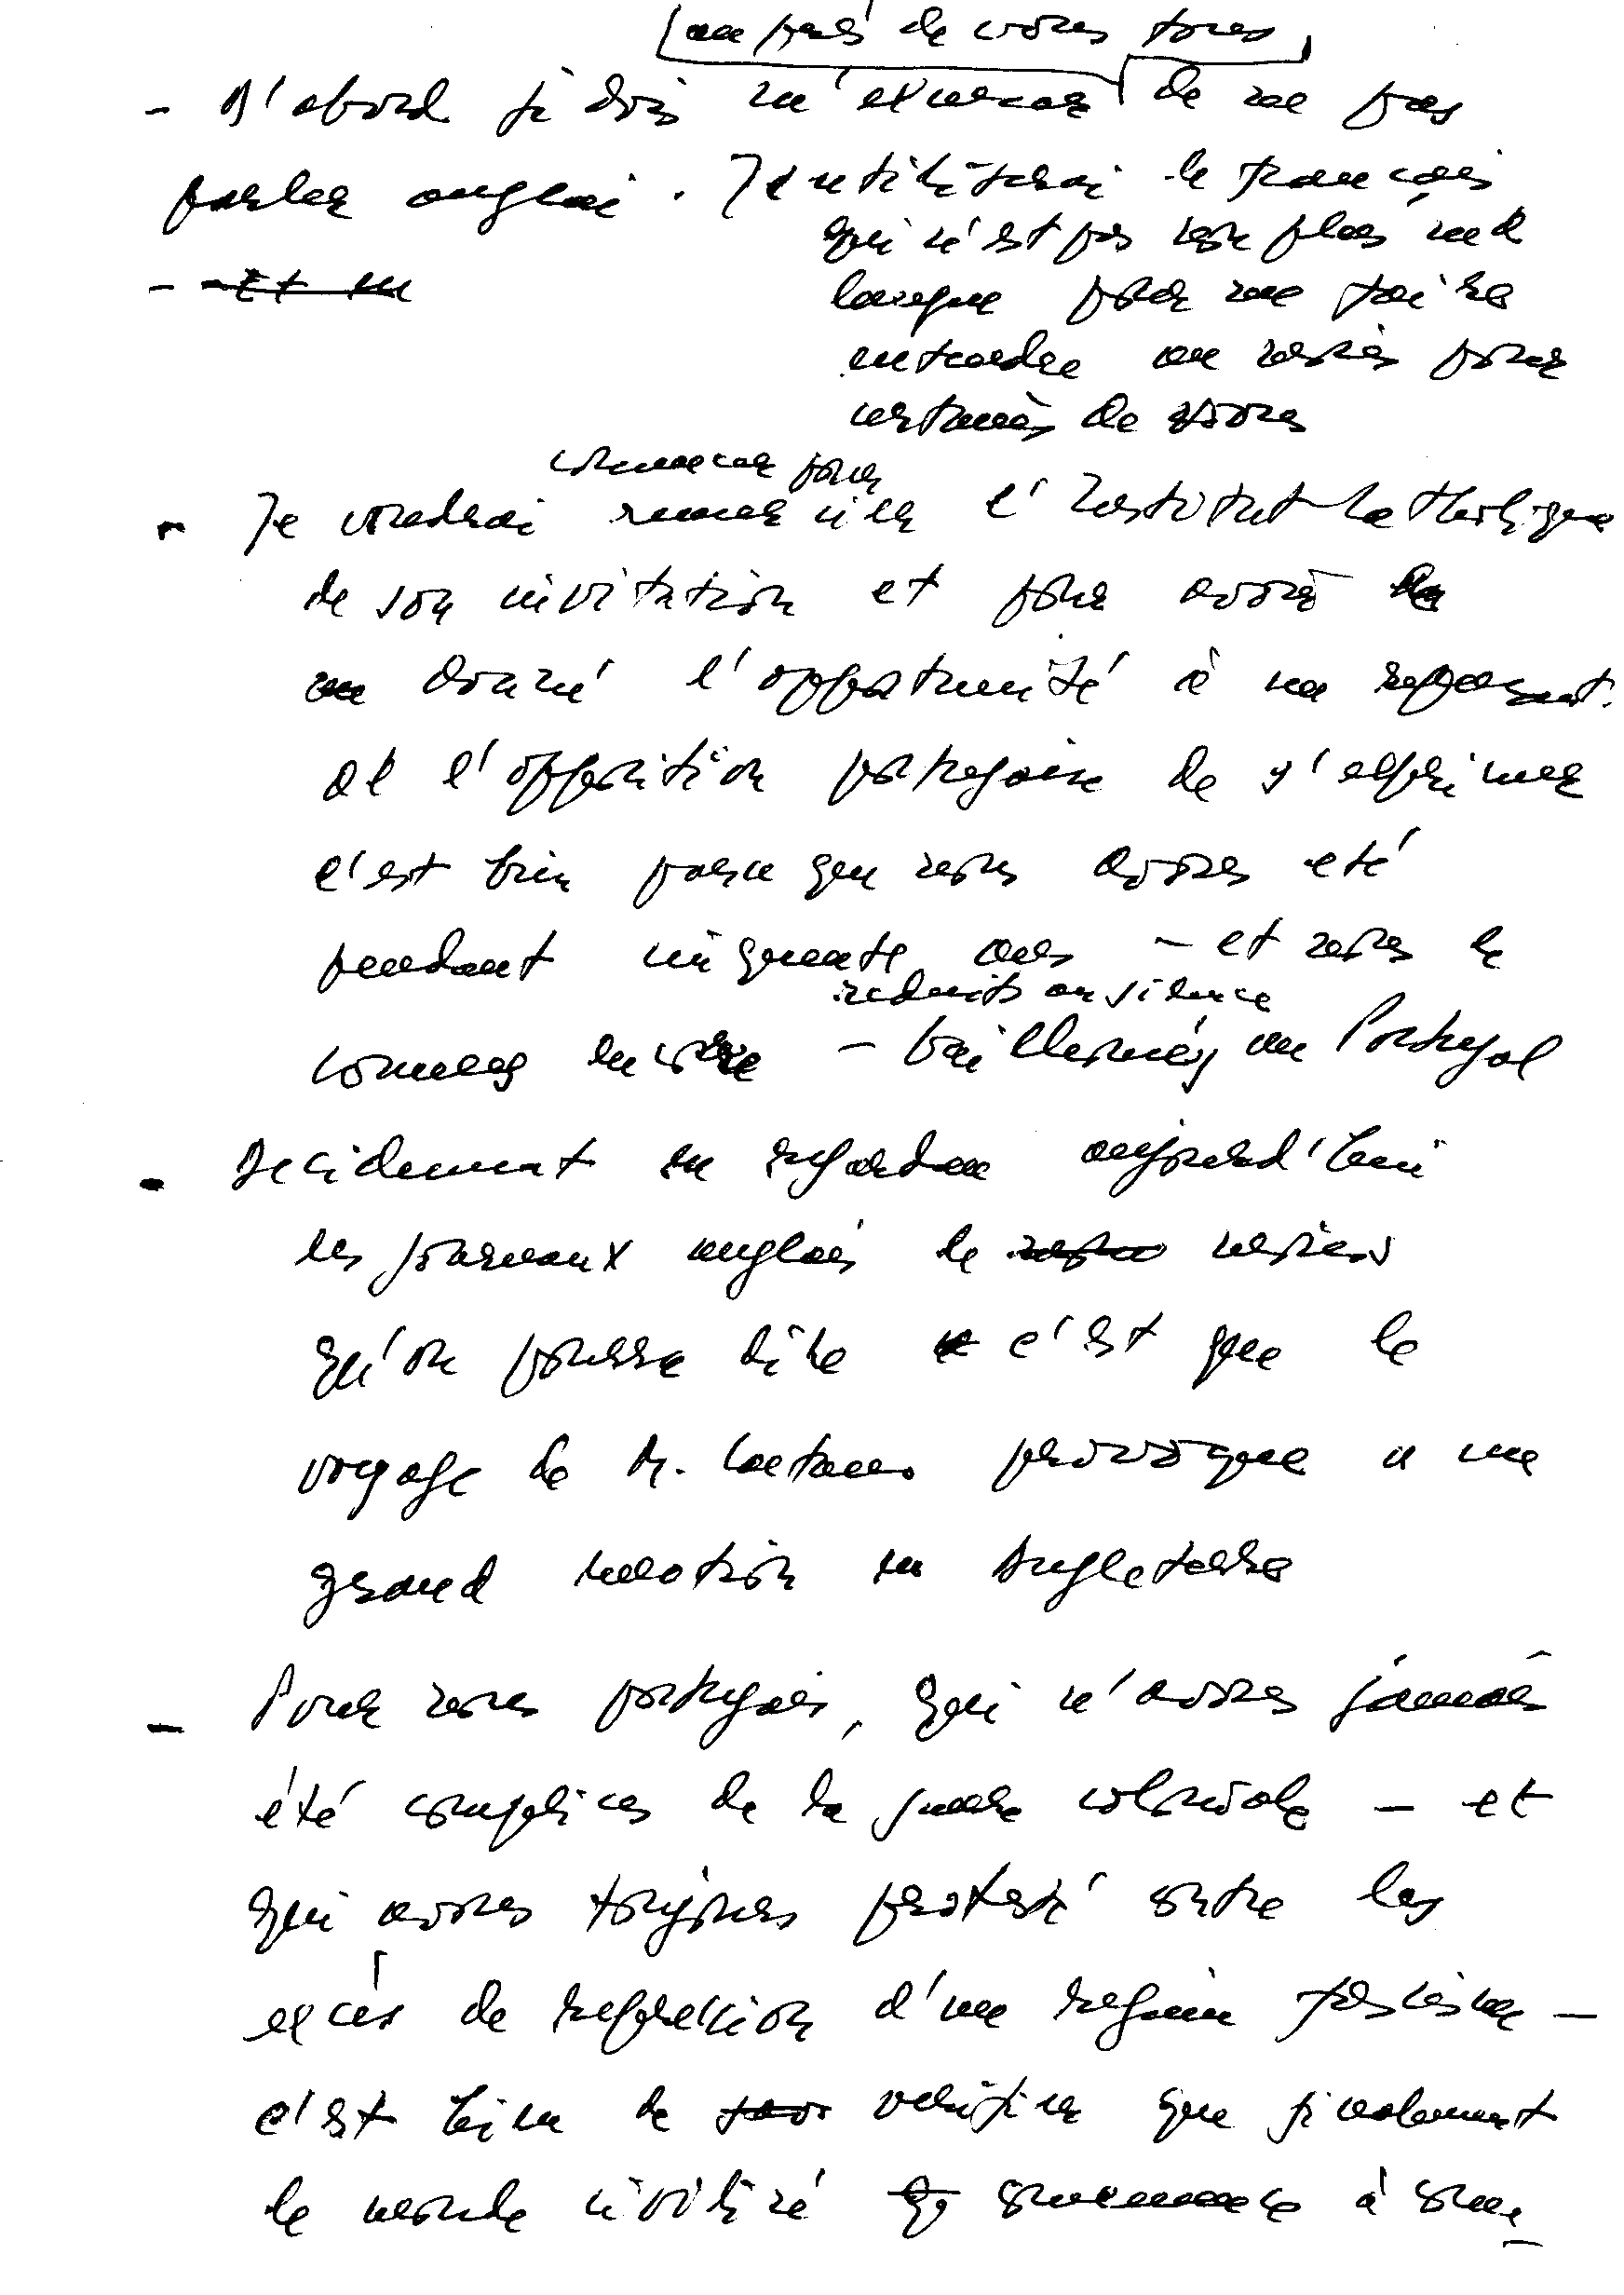 auprès de vous tous
- D'abord je dois m'excuser de ne pas
parler anglai. J'utiliserai le français
qui n'est pas non plus ma
langue pour me faire
entendre au moins pour
certains de vous
- Et en
commencer pour
- Je voudrai remercier l'Institut Catholique
de son invitation et pour avoir
donné l'opportunité à un
de l'opposition portugaise de s'exprimer
c'est bien parce que nous avons eté
pendant cinquante ans - et nous le
reduits au silence
sommes encore - baillonnés au Portugal
- Decidement en regardan aujourd'hui
les journaux anglais le moins
qu'on pourra dire c'est que le
voyage de M. Caetano provoque une
grand emotion en Angleterre
- Pour nous portugais, qui n'avons jamais
été complices de la guerre coloniale - et
qui avons toujours protesté contre les
excès de repression d'un regime fasciste -
c'est bien de verifier que finalement
le monde civilizé commence à con-